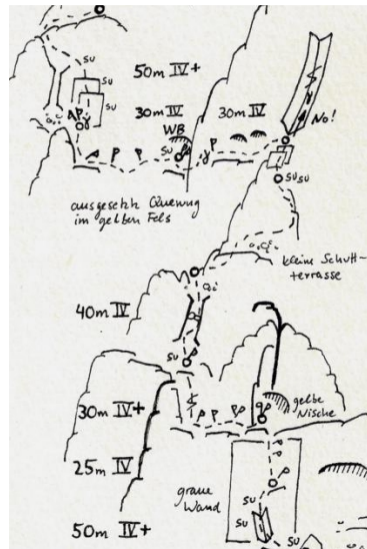 SU
SU
50m IV+
SU
30m IV
30m IV
No!
AP
WB
SU
P P
P
SU SU
ausgesetzte Querung
im gelben Fels
kleine Schutt-
terrasse
40m IV
SU
30m IV+
P P PP
gelbe
Nische
25m IV
graue
Wand
SU
SU
SU
50m IV+